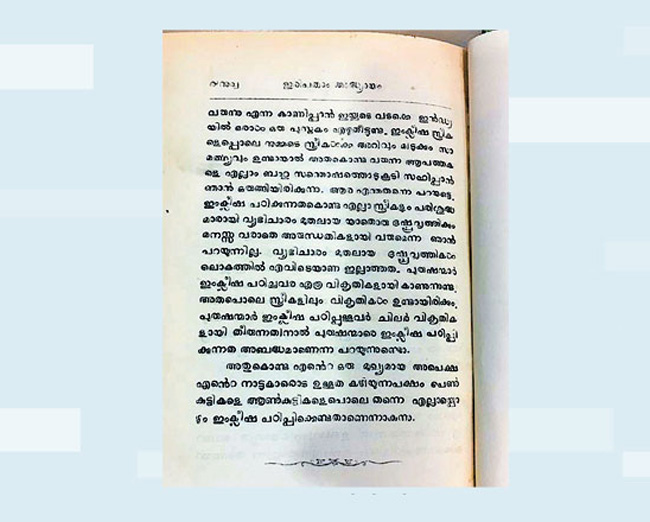 ഇരിപതാം അദ്ധ്യായം
വരുന്നു എന്ന കാണിപ്പാൻ ഇയ്യടെ വടക്കെ ഇൻഡ്യ
യിൽ ഒരാൾ ഒരു പുസ്തകം എഴുതീട്ടുണ്ടു. ഇംക്ലീഷ സ്ത്രീക
ളെപ്പൊലെ നമ്മടെ സ്ത്രീകൾക്ക അറിവും മിടുക്കും സാ
മൎത്ഥ്യവും ഉണ്ടായാൽ അതകൊണ്ടു വരുന്ന ആപത്തക
ളെ എല്ലാം ബഹു സന്തൊഷത്തൊടുകൂടി സഹിപ്പാൻ
ഞാൻ ഒരുങ്ങിയിരിക്കുന്നു. ആര എന്തുതന്നെ പറയട്ടെ.
ഇംക്ലീഷ പഠിക്കുന്നതകൊണ്ടു എല്ലാ സ്ത്രീകളും പരിശുദ്ധ
മാരായി വ്യഭിചാരം മുതലായ യാതൊരു ദുഷ്പ്രവൃത്തിക്കും
മനസ്സ വരാതെ അരുന്ധതികളായി വരുമെന്ന ഞാൻ
പറയുന്നില്ല. വ്യഭിചാരം മുതലായ ദുഷ്പ്രവൃത്തികൾ
ലൊകത്തിൽ എവിടെയാണ ഇല്ലാത്തത. പുരുഷന്മാർ
ഇംക്ലീഷ പഠിച്ചവര എത്ര വികൃതികളായി കാണുന്നുണ്ടു.
അതപൊലെ സ്ത്രീകളിലും വികൃതികൾ ഉണ്ടായിരിക്കും.
പുരുഷന്മാർ ഇംക്ലീഷ പഠിപ്പുള്ളവർ ചിലർ വികൃതിക
ളായി തീരുന്നതിനാൽ പുരുഷന്മാരെ ഇംക്ലീഷ പഠിപ്പി
ക്കുന്നത അബദ്ധമാണെന്ന പറയുന്നുണ്ടൊ.
അതുകൊണ്ടു എന്റെ ഒരു മുഖ്യമായ അപെക്ഷ
എന്റെ നാട്ടുകാരൊട ഉള്ളത കഴിയുന്നപക്ഷം പെൺ
കുട്ടികളെ ആൺകുട്ടികളെപൊലെ തന്നെ എല്ലായ്പൊ
ഴും ഇംക്ലീഷ പഠിപ്പിക്കെണ്ടതാണെന്നാകുന്നു.